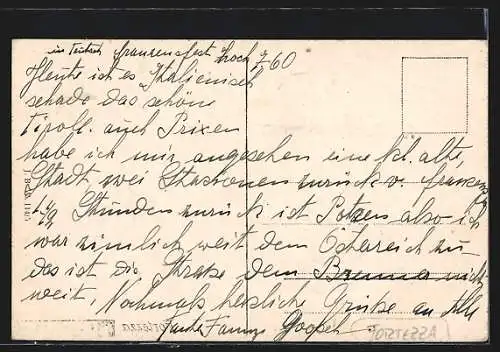 in Teutsch franzensfest hoch 760
Heute ist es Italienisch
schade das schöne
Tiroll. auch Prixen
habe ich mir angesehen eine kl. alte,
Stadt zwei Stashonen zurück v. franzensf
Stunden zurück ist Potzen also ich
war zimlich weit dem Östareich zu
das ist die Strase dem Brenner nicht
weit, Nochmals herzliche Grüße an Alle
(FORTEZZA)
Fortezza